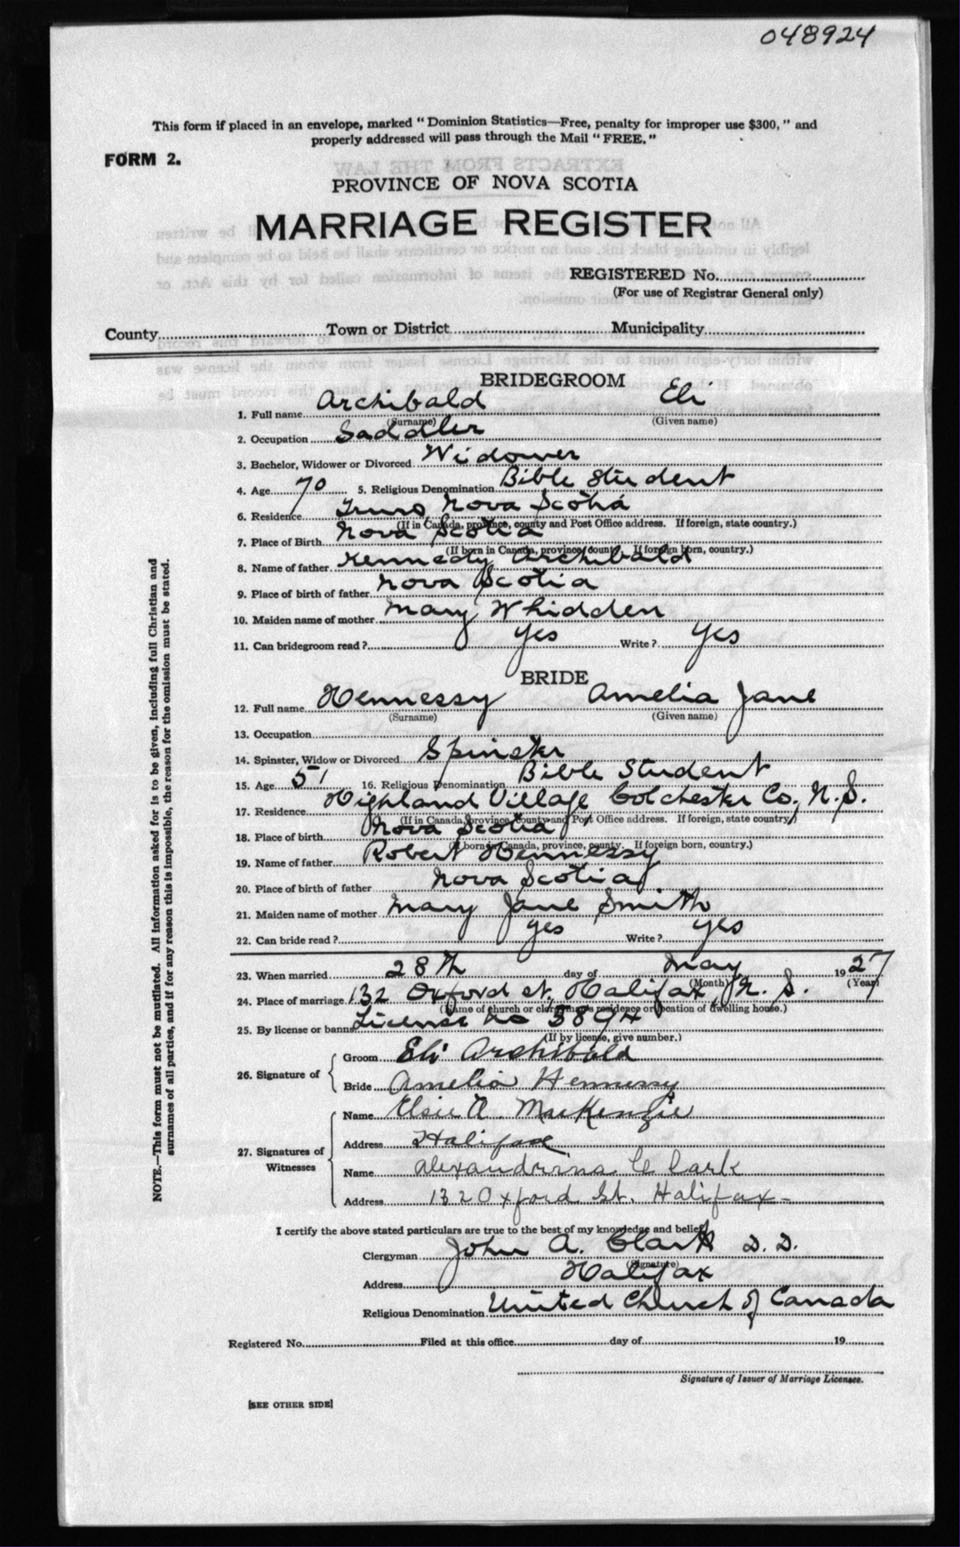 048924
This form if placed in an envelope, marked "Dominion Statistics—Free, penalty for improper use $300," and
properly addressed will pass through the Mail "FREE."
FORM 2.
EXTRACTS FROM THE LAW
PROVINCE OF NOVA SCOTIA
MARRIAGE REGISTER
REGISTERED No.
(For use of Registrar General only)
County Town or District Municipality
BRIDEGROOM
1. Full name Archibald Eli
(Surname) (Given name)
2. Occupation Saddler
3. Bachelor, Widower or Divorced Widower
4. Age 70 5. Religious Denomination Bible Student
6. Residence Truro Nova Scotia
(If in Canada, province, county and Post Office address. If foreign, state country.)
7. Place of Birth Nova Scotia
(If born in Canada, province, county. If foreign born, country.)
8. Name of father Kennedy Archibald
9. Place of birth of father Nova Scotia
10. Maiden name of mother Mary Whidden
11. Can bridegroom read? Yes Write? Yes
BRIDE
12. Full name Hennessy Amelia Jane
(Surname) (Given name)
13. Occupation
14. Spinster, Widow or Divorced Spinster
15. Age 51 16. Religious Denomination Bible Student
17. Residence Highland Village Colchester Co., N.S.
(If in Canada, province, county and Post Office address. If foreign, state country.)
18. Place of birth Nova Scotia
(If born in Canada, province, county. If foreign born, country.)
19. Name of father Robert Hennessy
20. Place of birth of father Nova Scotia
21. Maiden name of mother Mary Jane Smith
22. Can bride read? Yes Write? Yes
23. When married 28th day of May 1927
(Month) (Year)
24. Place of marriage 132 Oxford St, Halifax, N. S.
(Name of church or clergyman's residence or location of dwelling house.)
25. By license or banns License no
(If by license, give number.)
26. Signature of
Groom Eli Archibald
Bride Amelia Hennessy
27. Signatures of Witnesses
Name Elsie A MacKenzie
Address Halifax
Name Alexandrina C Clark
Address 132 Oxford St. Halifax
I certify the above stated particulars are true to the best of my knowledge and belief.
Clergyman John A. Clark D. D.
(Signature)
Address Halifax
Religious Denomination United Church of Canada
Registered No. Filed at this office day of 19
Signature of Issuer of Marriage Licenses.
[SEE OTHER SIDE]
NOTE.—This form must not be mutilated. All information asked for is to be given, including full Christian and
surnames of all parties, and if for any reason this is impossible, the reason for the omission must be stated.